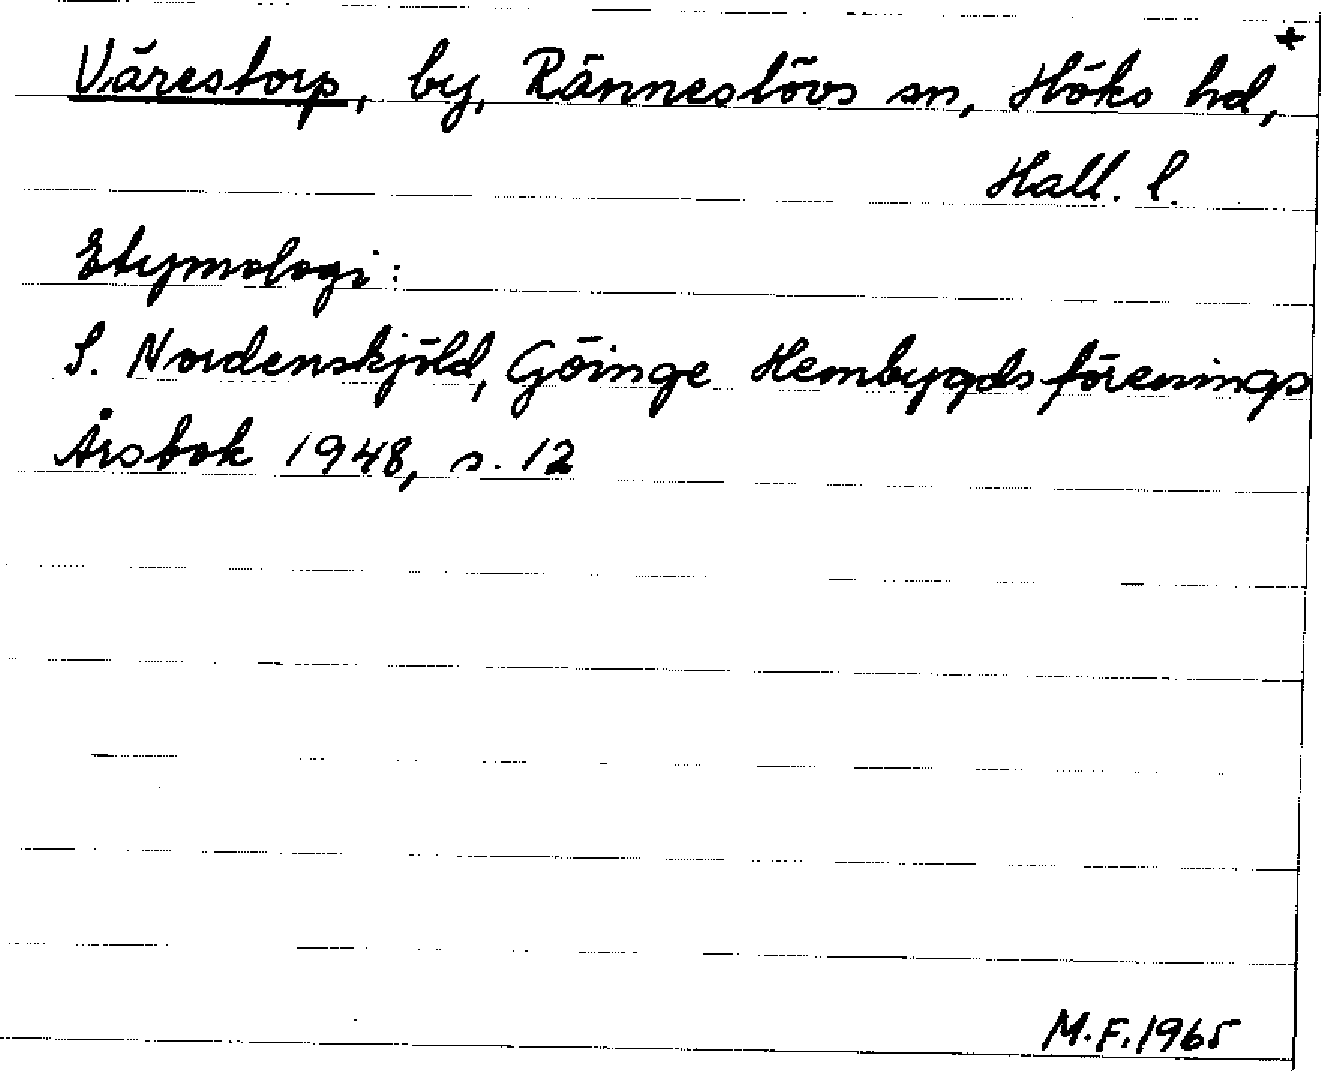 Värestorp, by, Ränneslövs sn, Höks hd,+
Hall. l.
Etymologi:
S. Nordenskjöld, Göinge Hembygdsförenings
Årsbok 1948, s. 12
M.F. 1965